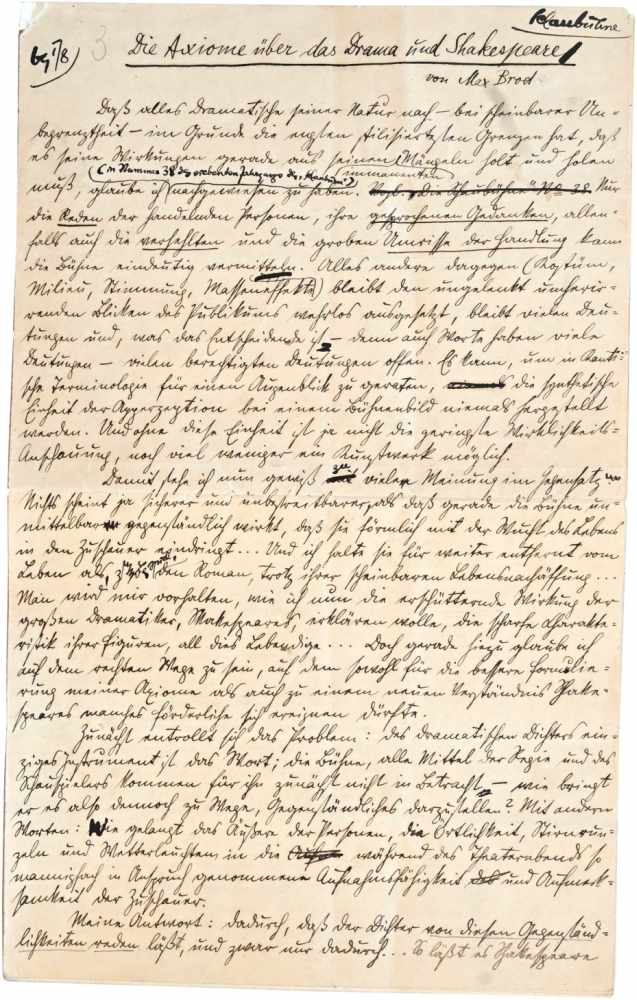 Schaubühne
bg 1/8) 3
Die Axiome über das Drama und Shakespeare
von Max Brod
Daß alles Dramatische seiner Natur nach – bei scheinbarer Un-
begrenztheit – im Grunde die engsten stilisiertesten Grenzen hat, daß
es seine Wirkungen gerade aus seinen Mängeln holt und holen
(in Nummer 38 des siebenten Jahrgangs der „Schaubühne") immanenten
muß, glaube ich nachgewiesen zu haben. Vergl. „Die Schaubühne" No 38. Nur
die Reden der handelnden Personen, ihre gesprochenen Gedanken, allen-
falls auch die verhehlten und die groben Umrisse der Handlung kann
die Bühne eindeutig vermitteln. Alles andere dagegen (Kostüm,
Milieu, Stimmung, Masseneffekte) bleibt den ungelenkt umherir-
renden Blicken des Publikums wehrlos ausgesetzt, bleibt vielen Deu-
tungen und, was das Entscheidende ist – denn auch Worte haben viele
Deutungen – vielen berechtigten Deutungen offen. Es kann, um in Kanti-
sche Terminologie für einen Augenblick zu geraten, die synthetische
Einheit der Apperzeption bei einem Bühnenbild niemals hergestellt
werden. Und ohne diese Einheit ist ja nicht die geringste Wirklichkeits-
Anschauung, noch viel weniger ein Kunstwerk möglich.
Damit stehe ich nun gewiß zu vieler Meinung im Gegensatz
Nichts scheint ja sicherer und unbestreitbarer, als daß gerade die Bühne un-
mittelbar gegenständlich wirkt, daß sie förmlich mit der Wucht des Lebens
in den Zuschauer eindringt... Und ich halte sie für weiter entfernt vom
Leben als, zum Beispiel, den Roman, trotz ihrer scheinbaren Lebensnachäffung...
Man wird mir vorhalten, wie ich nun die erschütternde Wirkung der
großen Dramatiker, Shakespeares, erklären wolle, die scharfe Charakte-
ristik ihrer Figuren, all dies Lebendige... Doch gerade hiezu glaube ich
auf dem rechten Wege zu sein, auf dem sowohl für die bessere Formulie-
rung meiner Axiome als auch zu einem neuen Verständnis Shake-
speares manches Förderliche sich ereignen dürfte.
Zunächst entrollt sich das Problem: des dramatischen Dichters ein-
ziges Instrument ist das Wort; die Bühne, alle Mittel der Regie und des
Schauspielers kommen für ihn zunächst nicht in Betracht – wie bringt
er es also dennoch zu Wege, Gegenständliches darzustellen? Mit andern
Worten: Wie gelangt das Äußere der Personen, die Örtlichkeit, Stirnrun-
zeln und Wetterleuchten in die während des Theaterabends so
mannigfach in Anspruch genommene Aufnahmsfähigkeit und Aufmerk-
samkeit der Zuschauer.
Meine Antwort: dadurch, daß der Dichter von diesen Gegenständ-
lichkeiten reden läßt, und zwar nur dadurch... So läßt es Shakespeare